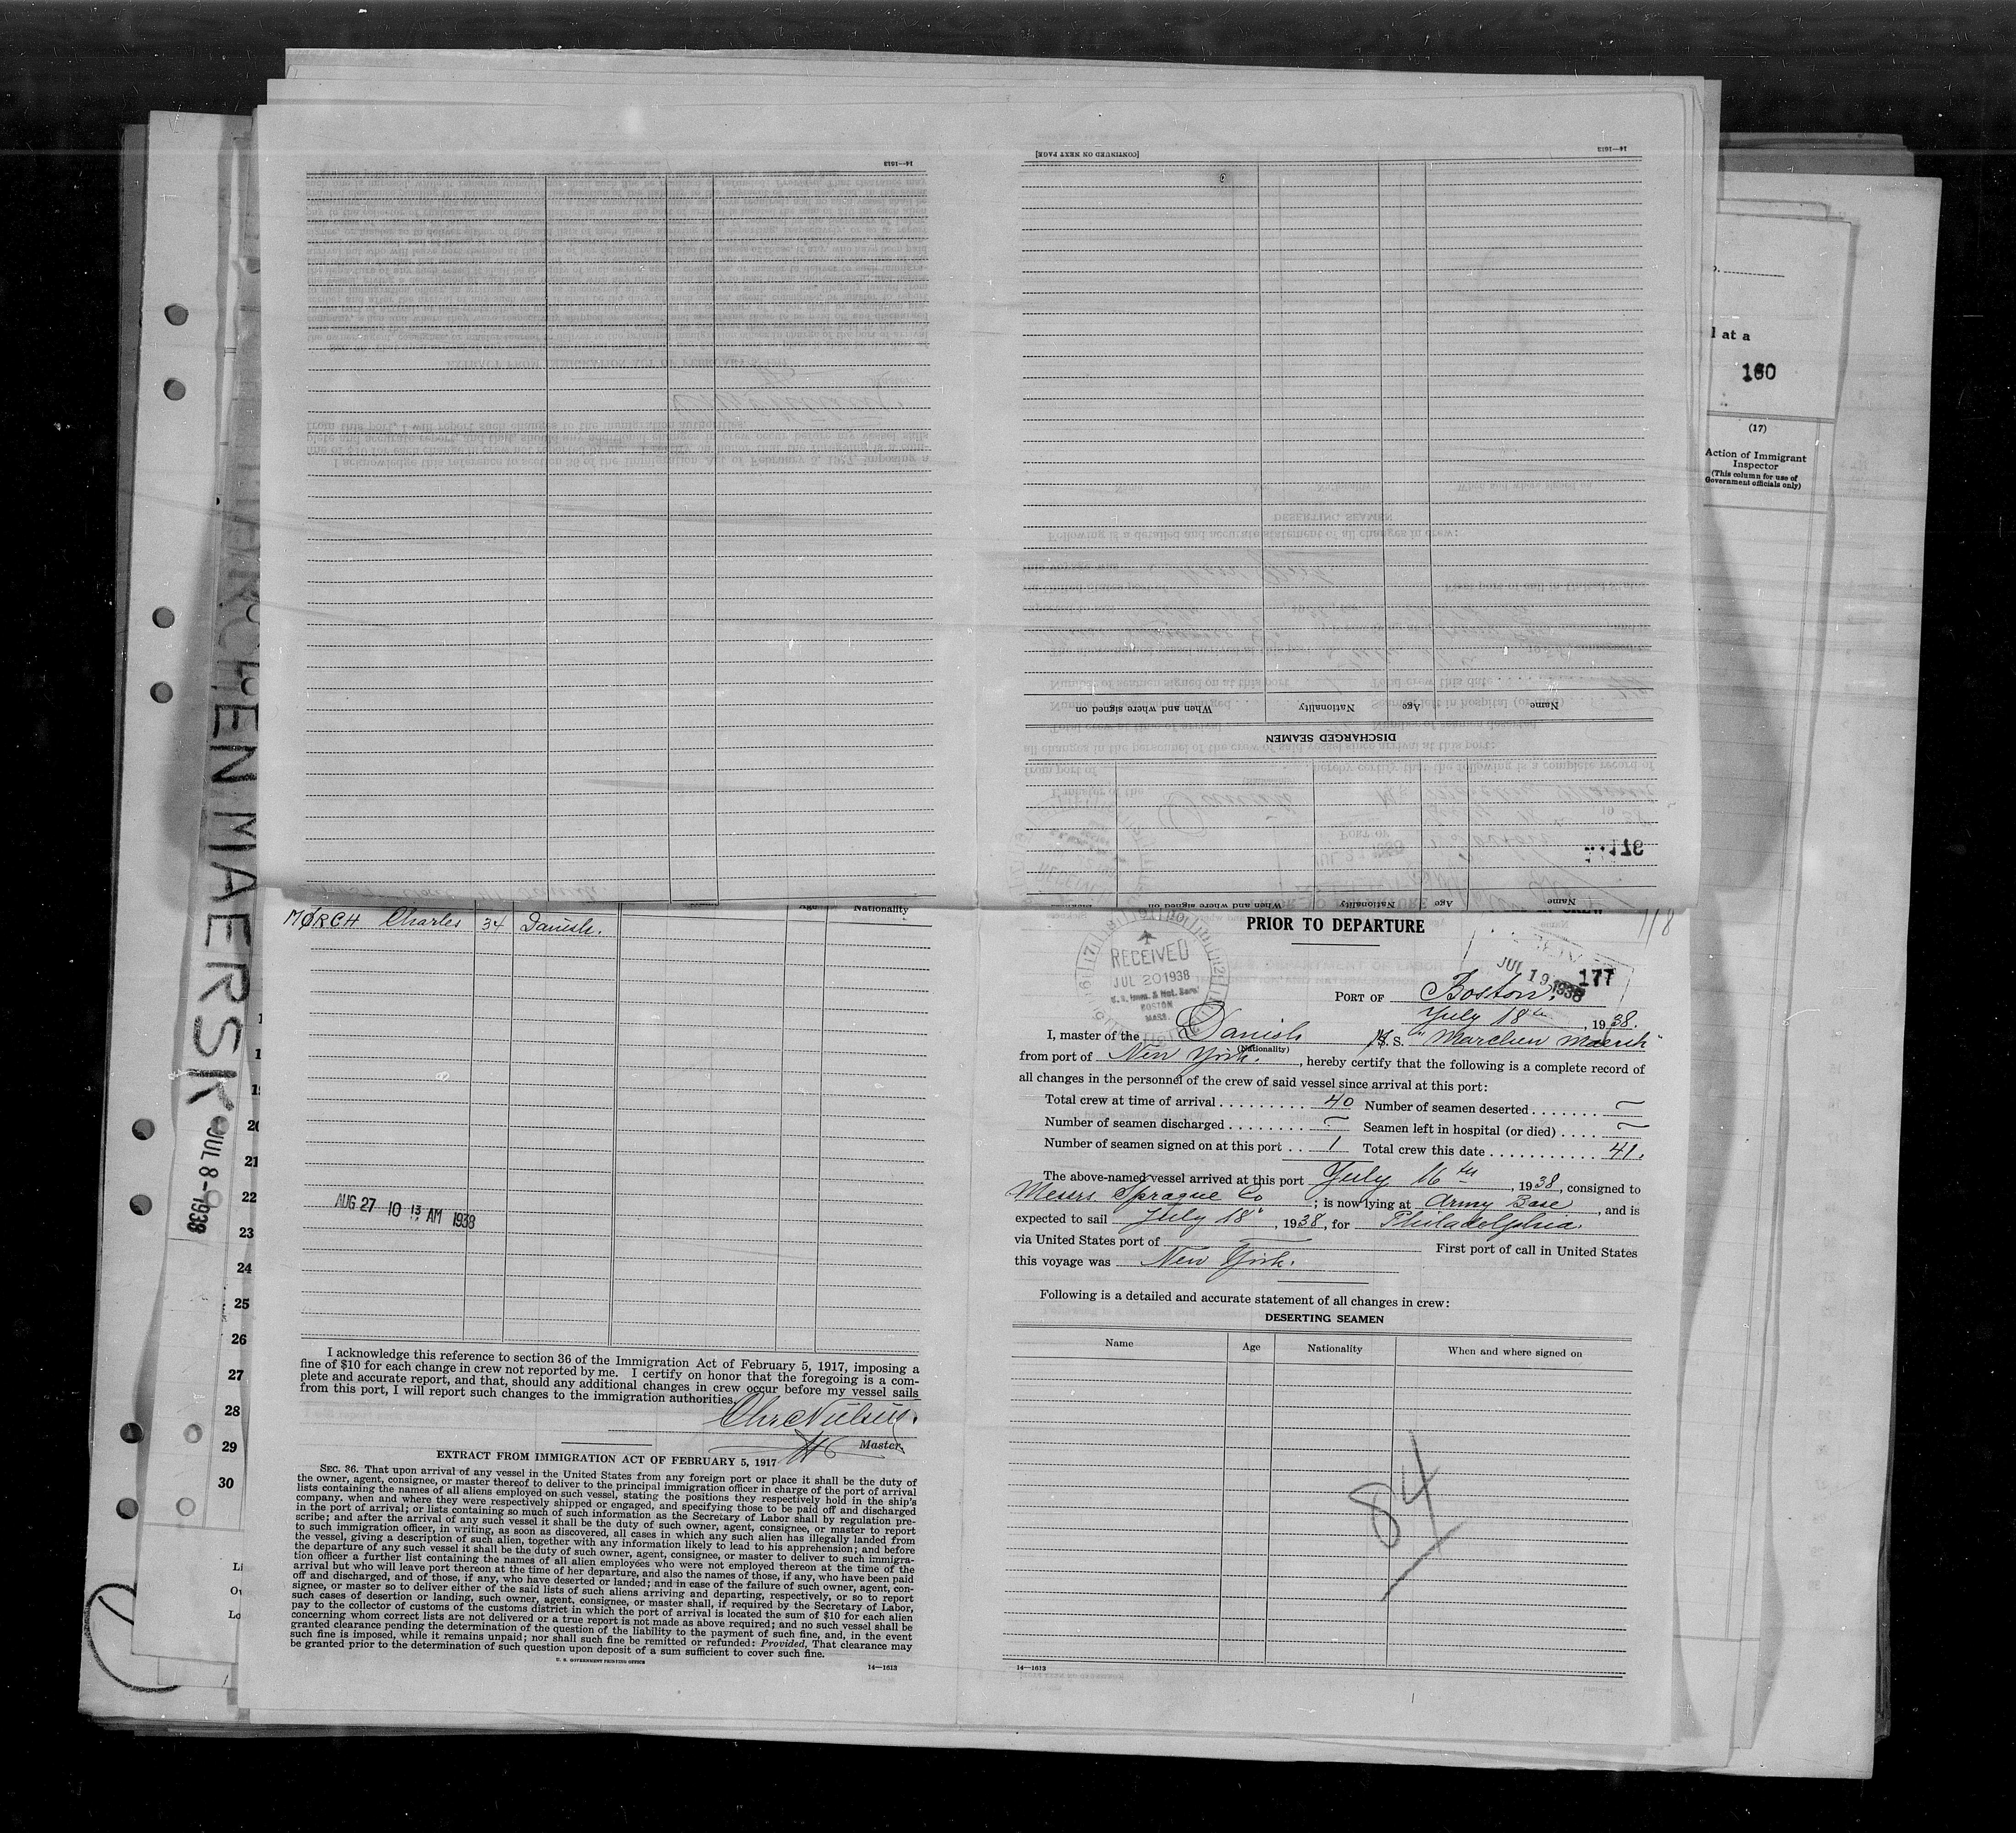 [CONTINUED ON NEXT PAGE]
14—1613
14—1613
Name
Age
Nationality
When and where signed on
DISCHARGED SEAMEN
176
Name
Age
Nationality
When and where signed on
l at a
160
(17)
Action of Immigrant
Inspector
(This column for use of
Government officials only)
MARCHEN MAERSK
JUL 8 - 1938
20
21
22
23
24
25
26
27
28
29
30
Nationality
MØRCH Charles 34 Danish.
AUG 27 10 13 AM 1938
I acknowledge this reference to section 36 of the Immigration Act of February 5, 1917, imposing a
fine of $10 for each change in crew not reported by me. I certify on honor that the foregoing is a com-
plete and accurate report, and that, should any additional changes in crew occur before my vessel sails
from this port, I will report such changes to the immigration authorities.
Chr Nielsen.
Master.
EXTRACT FROM IMMIGRATION ACT OF FEBRUARY 5, 1917
SEC. 36. That upon arrival of any vessel in the United States from any foreign port or place it shall be the duty of
the owner, agent, consignee, or master thereof to deliver to the principal immigration officer in charge of the port of arrival
lists containing the names of all aliens employed on such vessel, stating the positions they respectively hold in the ship's
company, when and where they were respectively shipped or engaged, and specifying those to be paid off and discharged
in the port of arrival; or lists containing so much of such information as the Secretary of Labor shall by regulation pre-
scribe; and after the arrival of any such vessel it shall be the duty of such owner, agent, consignee, or master to report
to such immigration officer, in writing, as soon as discovered, all cases in which any such alien has illegally landed from
the vessel, giving a description of such alien, together with any information likely to lead to his apprehension; and before
the departure of any such vessel it shall be the duty of such owner, agent, consignee, or master to deliver to such immigra-
tion officer a further list containing the names of all alien employees who were not employed thereon at the time of the
arrival but who will leave port thereon at the time of her departure, and also the names of those, if any, who have been paid
off and discharged, and of those, if any, who have deserted or landed; and in case of the failure of such owner, agent, con-
signee, or master so to deliver either of the said lists of such aliens arriving and departing, respectively, or so to report
such cases of desertion or landing, such owner, agent, consignee, or master shall, if required by the Secretary of Labor,
pay to the collector of customs of the customs district in which the port of arrival is located the sum of $10 for each alien
concerning whom correct lists are not delivered or a true report is not made as above required; and no such vessel shall be
granted clearance pending the determination of the question of the liability to the payment of such fine, and, in the event
such fine is imposed, while it remains unpaid; nor shall such fine be remitted or refunded: Provided, That clearance may
be granted prior to the determination of such question upon deposit of a sum sufficient to cover such fine.
U. S. GOVERNMENT PRINTING OFFICE
14—1613
118
PRIOR TO DEPARTURE
RECEIVED
JUL 20 1938
U. S. Imm. & Nat. Serv.
BOSTON
MASS.
JUL 19 1938
177
PORT OF Boston.
July 18th, 1938.
I, master of the Danish M. S. "Marchen Maersk"
(Nationality)
from port of New York., hereby certify that the following is a complete record of
all changes in the personnel of the crew of said vessel since arrival at this port:
Total crew at time of arrival . . . . . . . . . 40 Number of seamen deserted . . . . . . . —
Number of seamen discharged . . . . . . . . — Seamen left in hospital (or died) . . . . —
Number of seamen signed on at this port . . 1 Total crew this date . . . . . . . . . . . 41.
The above-named vessel arrived at this port July 16th, 1938, consigned to
Messrs Sprague Co; is now lying at Army Base, and is
expected to sail July 18th, 1938, for Philadelphia.
via United States port of — First port of call in United States
this voyage was New York.
Following is a detailed and accurate statement of all changes in crew:
DESERTING SEAMEN
Name Age Nationality When and where signed on
84
14—1613